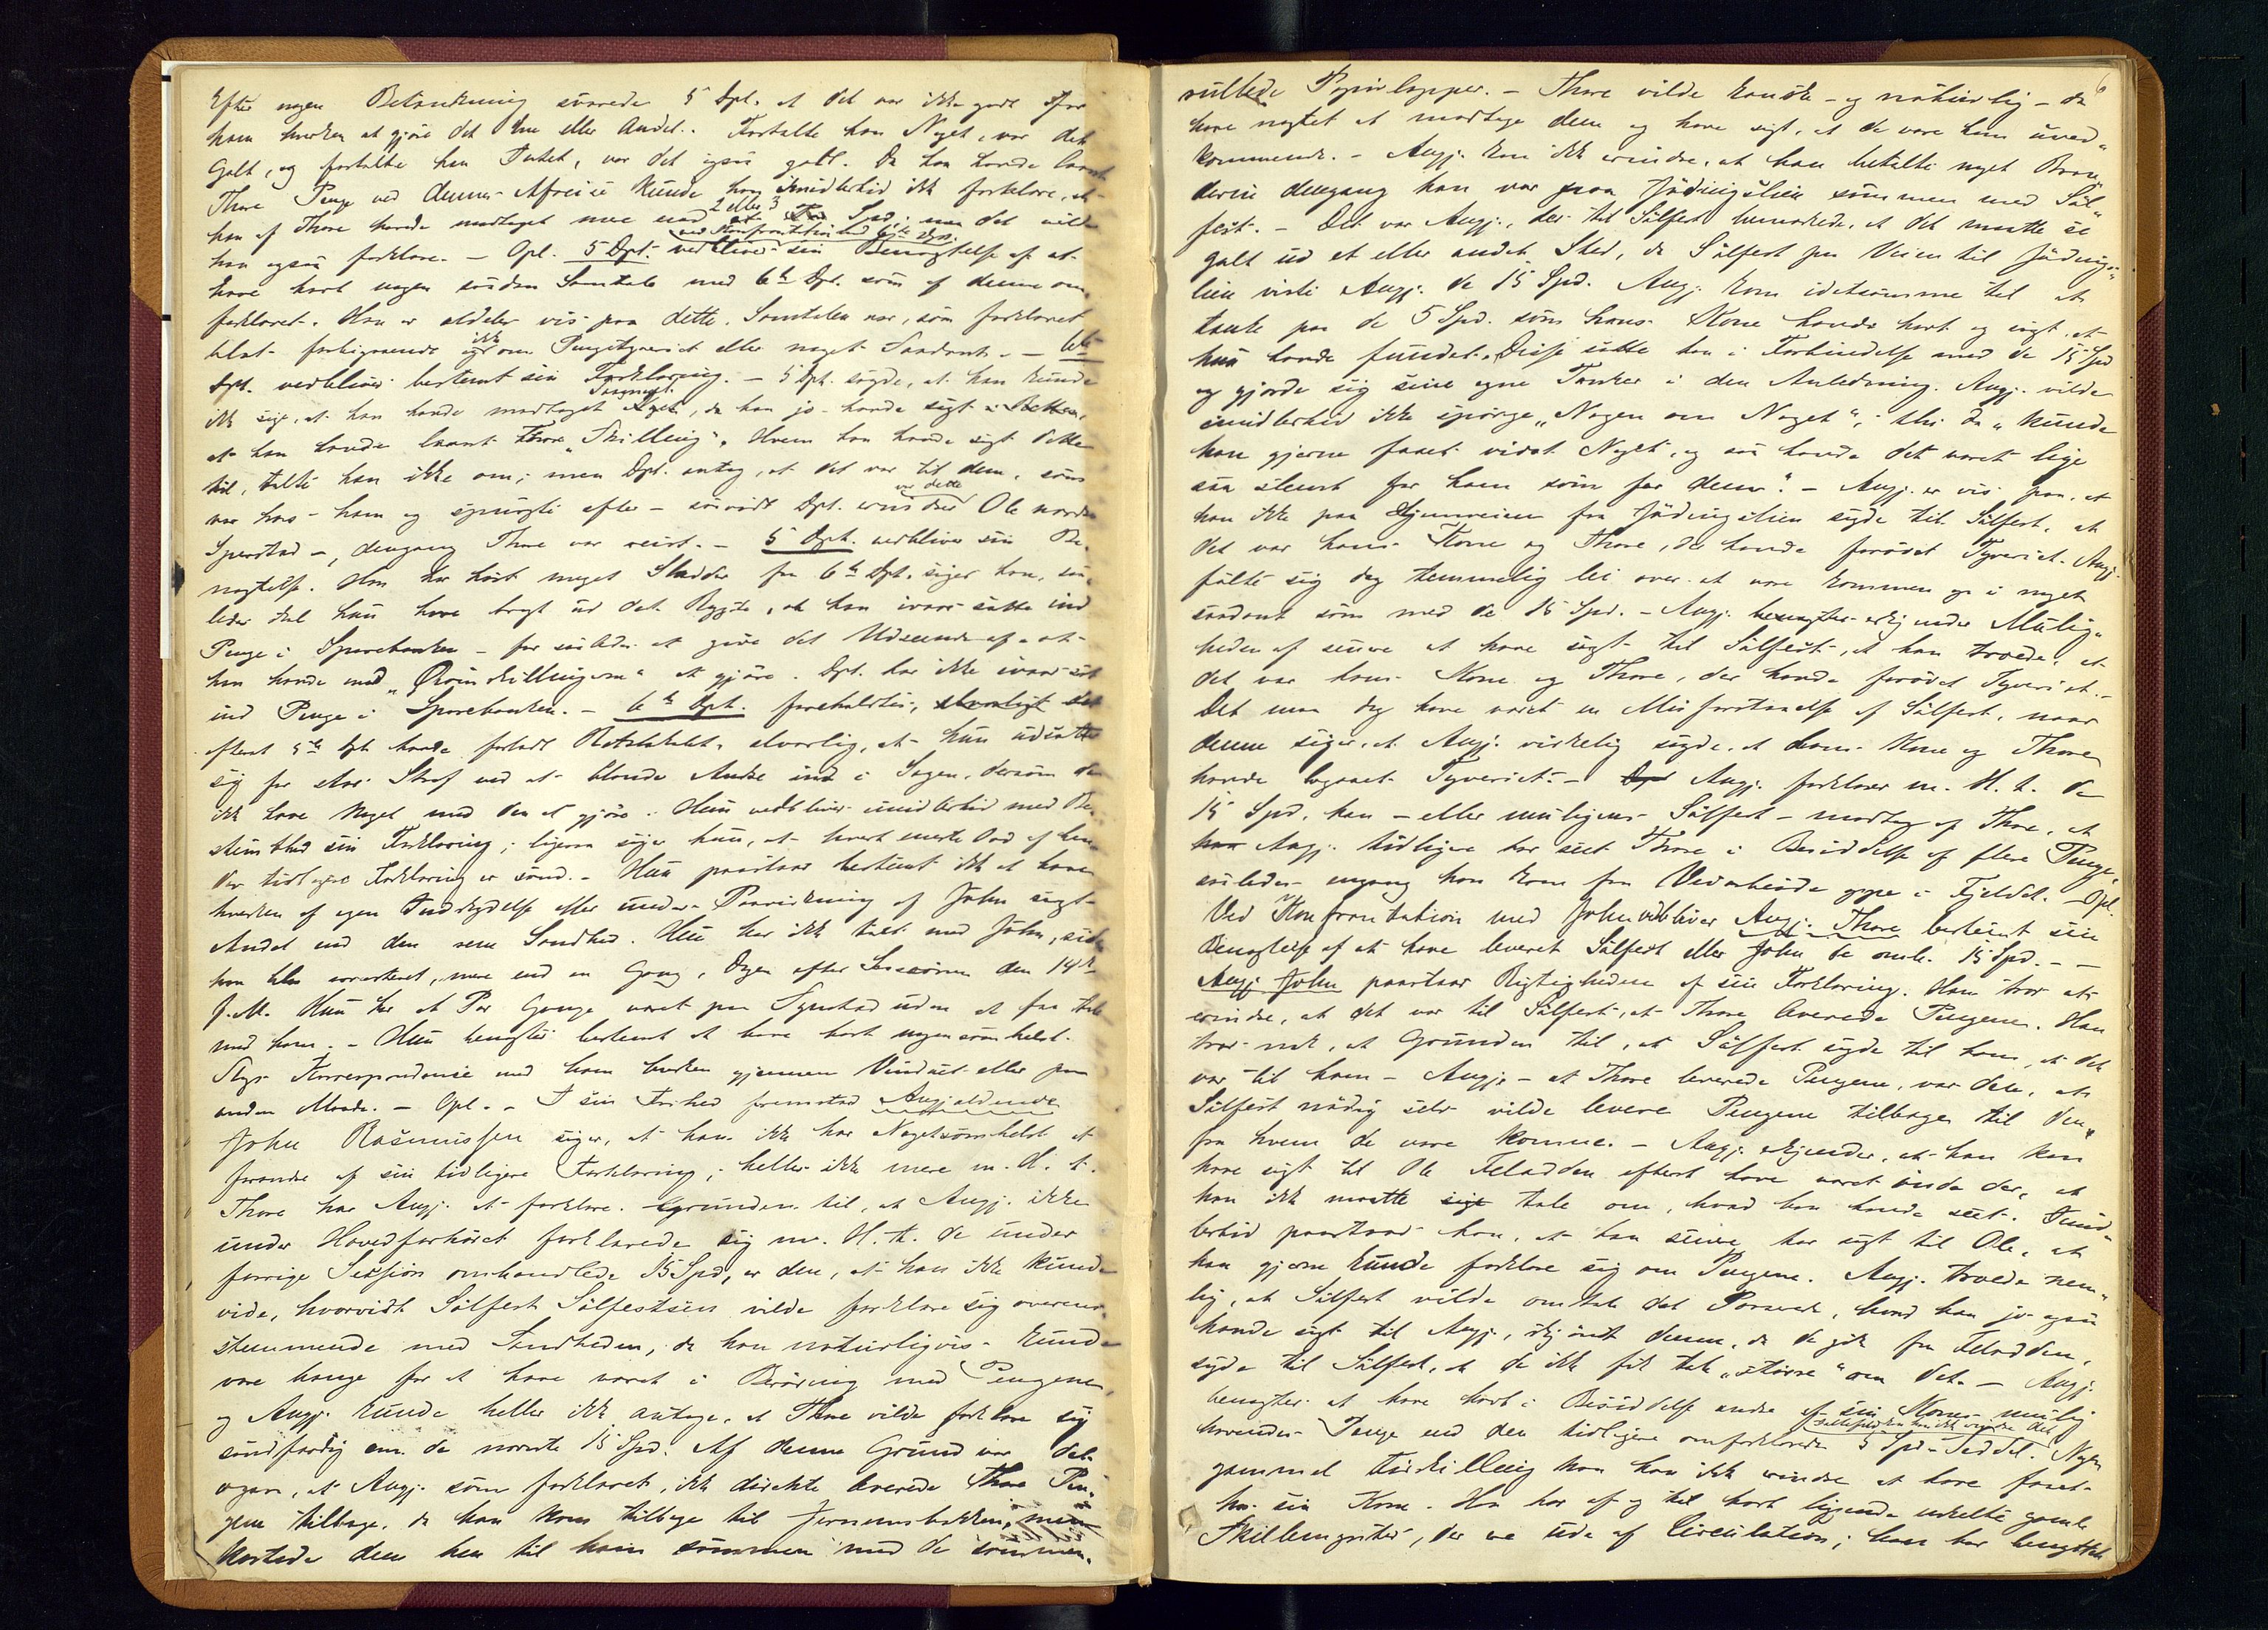 Efter nogen Betænkning svarede 5 Dpt. at det var ikke godt for
ham hverken at gjøre det Ene eller Andet. Fortalte han Noget, var det
Galt, og fortalte han Intet, var det ogsaa galt. Da han havde laant
Thore Penge ved dennes Afreise kunde han imidlertid ikke forklare, at
han af Thore havde modtaget mere end 2 eller 3 Spd; men det vilde
han ogsaa forklare. — Opl. 5 Dpt. vedbliver ved Konfrontation med 6te Dpt. sin Benægtelse af at
have havt nogen saadan Samtale med 6te Dpt. som af denne om-
forklaret. Han er aldeles vis paa dette. Samtalen var, som forklaret
blot forbigaaende og ikke om Pengetyveriet eller noget Saadant. — 6te
Dpt. vedbliver bestemt sin Forklaring. — 5 Dpt. sagde, at han kunde
ikke sige, at han havde modtaget saameget, da han jo havde sagt i Retten,
at han havde laant Thore "Skilling". Hvem han havde sagt dette
til, talte han ikke om; men Dpt. antog, at det var til dem, som
var hos ham og spurgte efter — saavidt Dpt. erindrer var dette Ole nordre
Sperstad —, dengang Thore var reist. — 5 Dpt. vedbliver sin Be-
nægtelse. Han har hørt meget Sladder fra 6te Dpt. siger han, saa-
ledes skal hun have bragt ud det Rygte, at han ivaar satte ind
Penge i Sparebanken — for saaledes at give det Udseende af at
han havde med "Ørinskillingerne" at gjøre. Dpt. har ikke ivaar sat
ind Penge i Sparebanken. — 6te Dpt. foreholdtes, alvorligt det
efterat 5te Dpt. havde forladt Retslokalet, alvorlig, at hun udsatte
sig for stor Straf ved at blande Andre ind i Sagen, dersom de
ikke have Noget med den at gjøre. Hun vedbliver imidlertid med Be-
stemthed sin Forklaring; ligesom siger hun, at hvert eneste Ord af hen-
des tidligere Forklaring er sand. — Hun paastaar bestemt ikke at have
hverken af egen Indskydelse eller under Paavirkning af John sagt
Andet end den rene Sandhed. Hun har ikke talt med John, siden
han blev arresteret, mere end en Gang, Dagen efter Sessionen den 14de
f. M. Hun har et Par Gange været paa Synstad uden at faa tale
med ham. — Hun benægter bestemt at have havt nogensomhelst
Slags Korrespondance med ham hverken gjennem Vinduet eller paa
anden Maade. — Opl. — I sin Frihed fremstod Angjældende
John Rasmussen siger, at han ikke har Nogetsomhelst at
forandre af sin tidligere Forklaring; heller ikke mere m. H. t.
Thore har Angj. at forklare. Grunden til, at Angj. ikke
under Hovedforhøret forklarede sig m. H. t. de under
forrige Session omhandlede 15 Spd, er den, at han ikke kunde
vide, hvorvidt Sølfest Sølfestsen vilde forklare sig overens-
stemmende med Sandheden, da han naturligvis kunde
være bange for at have været i Berøring med Pengene,
og Angj. kunde heller ikke antage, at Thore vilde forklare sig
sandfærdig om de nævnte 15 Spd. Af denne Grund var det
ogsaa, at Angj. som forklaret, ikke direkte leverede Thore Pen-
gene tilbage, da han kom tilbage til Jernumsbakken, men
kastede dem hen til ham sammen med de sammen-
rullede Papirlapper. — Thore vilde kanske — og naturlig — da
have nægtet at modtage dem og have sagt, at de vare ham uved-
kommende. — Angj. kan ikke erindre, at han betalte noget Bræn-
devin dengang han var paa Jødingslien sammen med Søl-
fest. — Det var Angj., der til Sølfest bemærkede, at det maatte se
galt ud et eller andet Sted, da Sølfest paa Veien til Jødings-
lien viste Angj. de 15 Spd. Angj. kom idetsamme til at
tænke paa de 5 Spd. som hans Kone havde havt og sagt, at
hun havde fundet. Disse satte han i Forbindelse med de 15 Spd
og gjorde sig sine egne Tanker i den Anledning. Angj. vilde
imidlertid ikke spørge "Nogen om Noget", thi da "kunde
han gjerne faaet vidst Noget, og saa havde det været lige
saa slemt for ham som for dem". — Angj. er vis paa, at
han ikke paa Hjemveien fra Jødingslien sagde til Sølfest, at
det var hans Kone og Thore, der havde forøvet Tyveriet. Angj.
følte sig dog temmelig lei over at være kommen op i noget
saadant som med de 15 Spd. — Angj. benægter erkjender Mulig-
heden af senere at have sagt til Sølfest, at han troede, at
det var hans Kone og Thore, der havde forøvet Tyveriet. —
Det maa dog have været en Misforstaaelse af Sølfest, naar
denne siger, at Angj. virkelig sagde, at hans Kone og Thore
havde begaaet Tyveriet. — Angj. forklarer m. H. t. de
15 Spd. han — eller muligens Sølfest — modtog af Thore, at
han Angj. tidligere har seet Thore i Besiddelse af flere Penge,
saaledes engang han kom fra Vedarbeide oppe i Fjeldet. — Opl.
Ved Konfrontation med John vedbliver Angj. Thore bestemt sin
Benægtelse af at have leveret Sølfest eller John de omh. 15 Spd. —
Angj. John paastaar Rigtigheden af sin Forklaring. Han tror at
erindre, at det var til Sølfest, at Thore leverede Pengene. Han
tror nok, at Grunden til, at Sølfest sagde til ham, at det
var til ham — Angj. — at Thore leverede Pengene, var den, at
Sølfest nødig selv vilde levere Pengene tilbage til den,
fra hvem de vare komne. — Angj. erkjender, at han kan
have sagt til Ole Feladden efterat have været inde der, at
han ikke maatte sige tale om, hvad han havde seet. Imid-
lertid paastaar han, at han senere har sagt til Ole, at
han gjerne kunde forklare sig om Pengene. Angj. troede nem-
lig, at Sølfest vilde omtale det Passerede, hvad han jo ogsaa
havde sagt til Angj., idet denne, da de gik fra Feladden,
sagde til Sølfest, at de ikke fik tale "større" om det. — Angj.
benægter at have havt i Besiddelse andre af sin Kone mulig
havendes Penge end den tidligere omforklarede 5 Spd-Seddel. Nogen
gammel Tiskilling kan han ikke erindre at have faaet
hos sin Kone. Han har af og til havt liggende enkelte gamle
Skillemynter, der ere ude af Circulation; han har benyttet